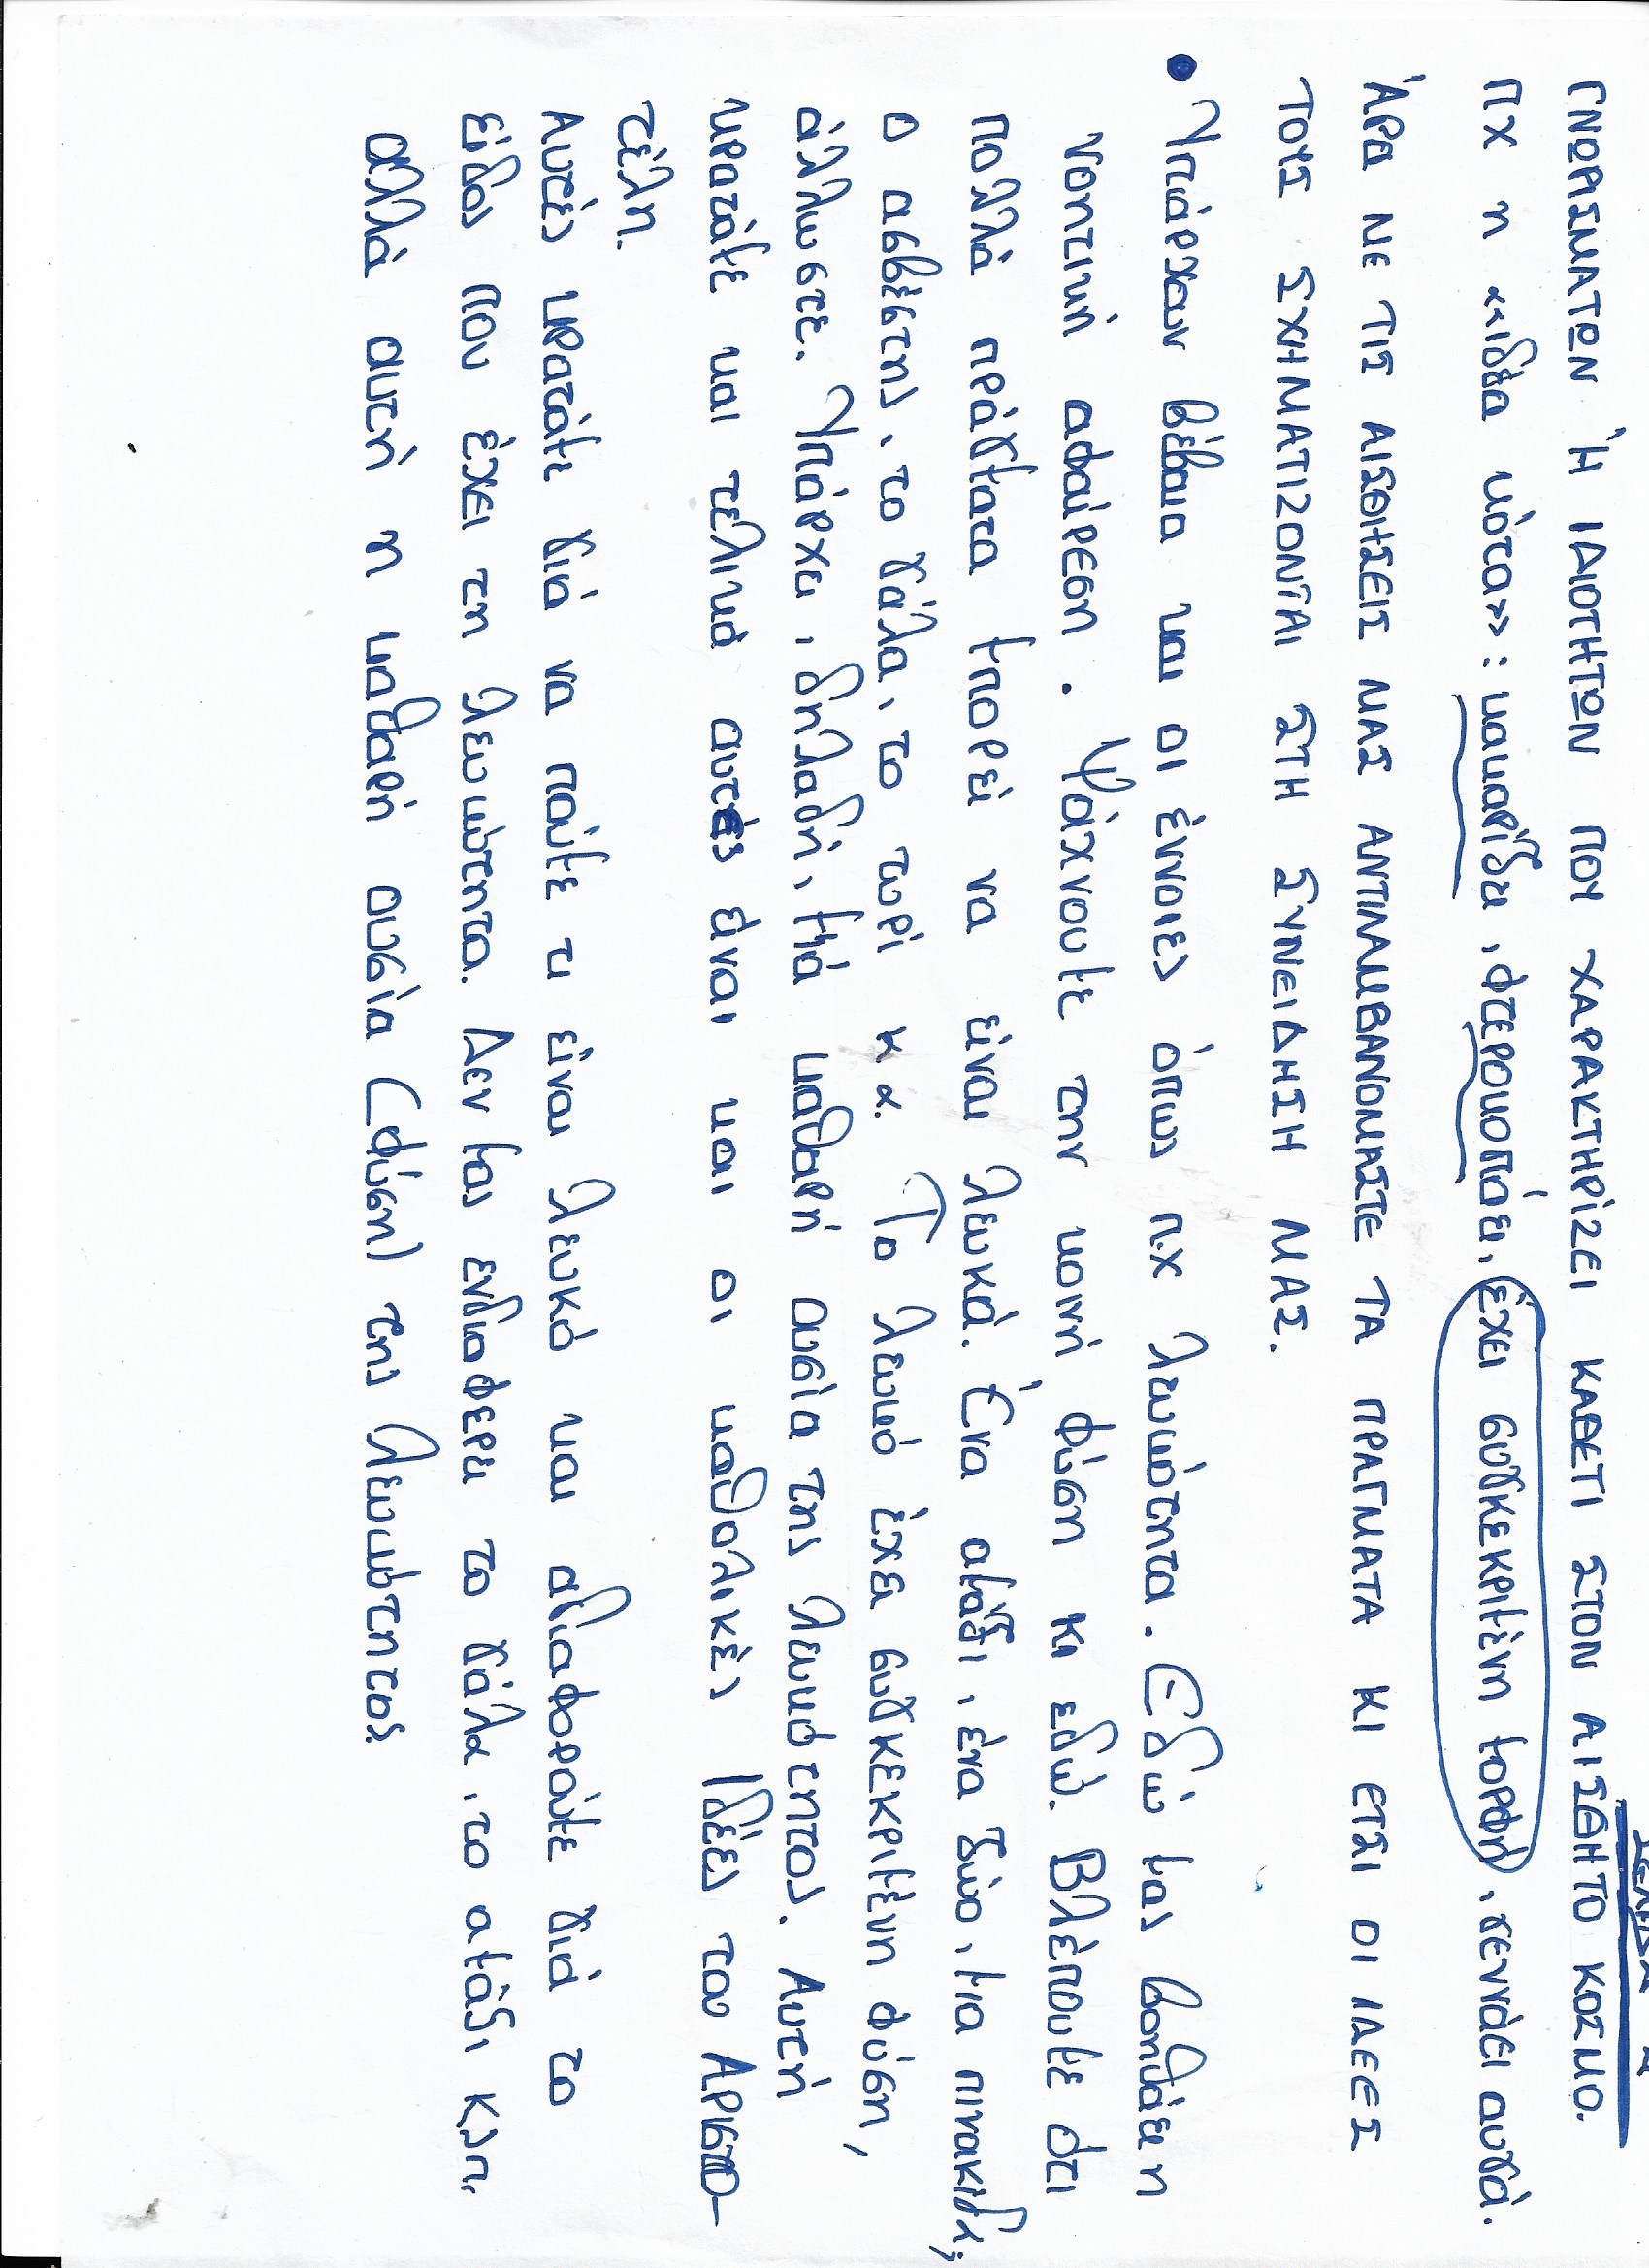 ΣΕΛΙΔΑ
ΓΝΩΡΙΣΜΑΤΩΝ Ή ΙΔΙΟΤΗΤΩΝ ΠΟΥ ΧΑΡΑΚΤΗΡΙΖΕΙ ΚΑΘΕΤΙ ΣΤΟΝ ΑΙΣΘΗΤΟ ΚΟΣΜΟ.
ΠΧ η «ιδέα κότα»: κακαρίζει, φτεροκοπάει, έχει συγκεκριμένη μορφή, γεννάει αυγά.
ΆΡΑ ΜΕ ΤΙΣ ΑΙΣΘΗΣΕΙΣ ΜΑΣ ΑΝΤΙΛΑΜΒΑΝΟΜΑΣΤΕ ΤΑ ΠΡΑΓΜΑΤΑ ΚΙ ΕΤΣΙ ΟΙ ΙΔΕΕΣ
ΤΟΥΣ ΣΧΗΜΑΤΙΖΟΝΤΑΙ ΣΤΗ ΣΥΝΕΙΔΗΣΗ ΜΑΣ.
• Υπάρχουν βέβαια και οι έννοιες όπως π.χ λευκότητα. Εδώ μας βοηθάει η
νοητική αφαίρεση. Ψάχνουμε την κοινή φύση κι εδώ. Βλέπουμε ότι
πολλά πράγματα μπορεί να είναι λευκά. Ένα αμάξι, ένα ζώο, μια πινακίδα,
ο ασβέστης, το γάλα, το τυρί κ α. Το λευκό έχει συγκεκριμένη φύση,
άλλωστε. Υπάρχει, δηλαδή, μιά καθαρή ουσία της λευκότητος. Αυτή
κρατάμε και τελικά αυτές είναι και οι καθολικές Ιδέες του Αριστο-
τέλη.
Αυτές κρατάμε γιά να πούμε τι είναι λευκό και αδιαφορούμε γιά το
είδος που έχει τη λευκότητα. Δεν μας ενδιαφέρει το γάλα, το αμάξι κλπ.
αλλά αυτή η καθαρή ουσία (φύση) της λευκότητος.